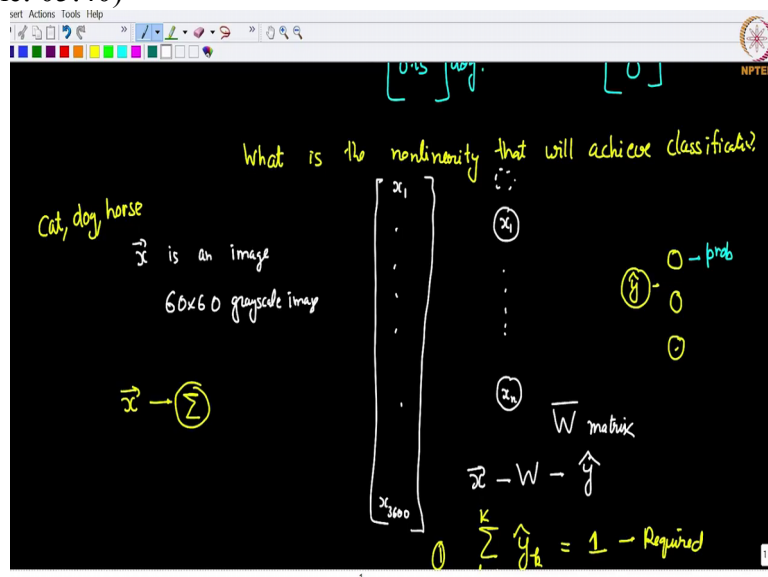 sert Actions Tools Help
NPTE
0.15 dog.
0
What is the nonlinearity that will achieve classification?
Cat, dog, horse
x⃗ is an image
60x60 grayscale image
x₁
x₃₆₀₀
x₁
xₙ
ŷ - 0 - prob
0
0
x⃗ → Σ
W̅ matrix
x⃗ - W - ŷ
① K Σ ŷₖ = 1 - Required
1